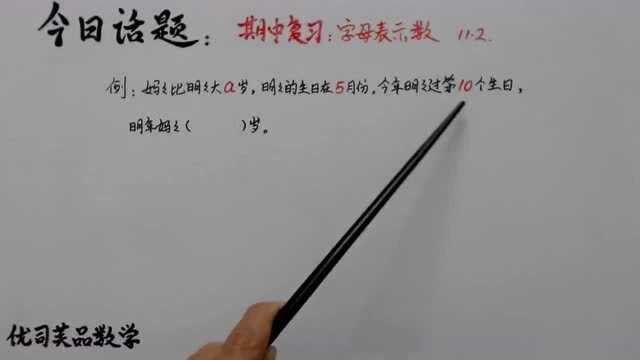 今日话题：期中复习：字母表示数 11.2.
例：妈々比明々大a岁，明々的生日在5月份，今年明々过第10个生日，
明年妈々（ ）岁。
优司芙品数学